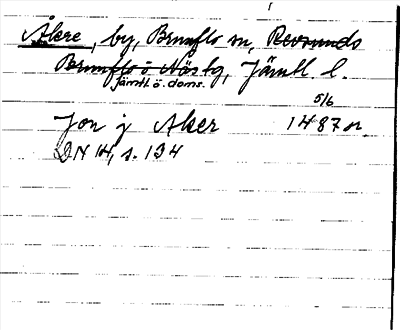 Åkere, by, Brunflo sn, Revsunds
Brunflo o Näs tg, Jämtl. l.
jämtl. ö. doms.
5/6
Jon j Aker 1487 or.
DN 14, s. 134